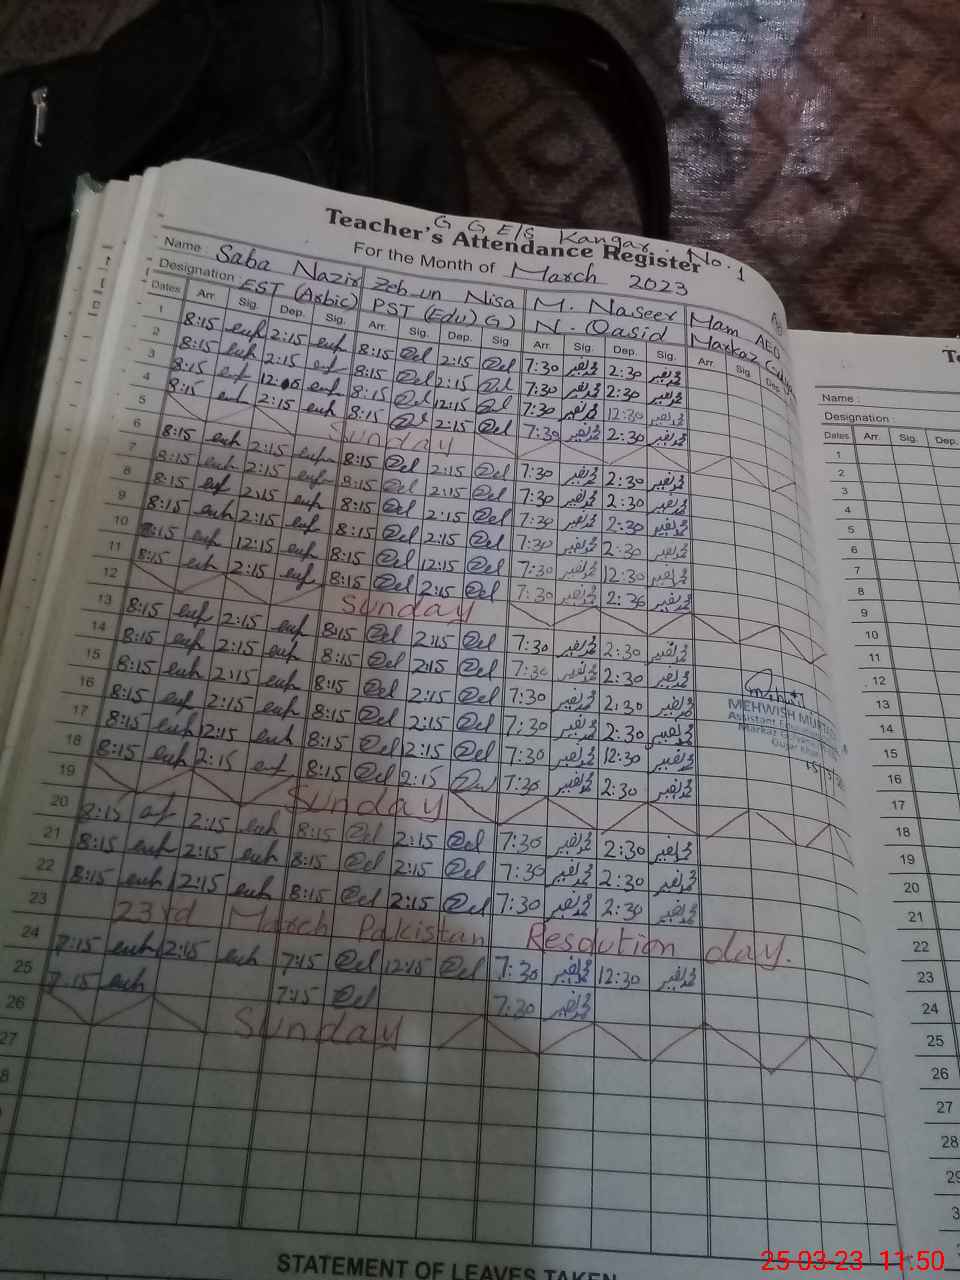 G G E/S Kangar. No. 1
Teacher's Attendance Register
For the Month of March 2023
Name: Saba Nazir Zeb-un Nisa M. Naseer Mam AEO
Designation: EST (Arbic) PST (Edu) G) N. Qasid Markaz
Dates Arr. Sig. Dep. Sig. Arr. Sig. Dep. Sig. Arr. Sig. Dep. Sig. Arr. Sig. Dep.
1 8:15 2:15 8:15 2:15 7:30 محمد نصیر 2:30 محمد نصیر
2 8:15 2:15 8:15 2:15 7:30 محمد نصیر 2:30 محمد نصیر
3 8:15 8:15 12:15 7:30 محمد نصیر 12:30 محمد نصیر
4 8:15 2:15 8:15 2:15 7:30 محمد نصیر 2:30 محمد نصیر
5 Sunday
6 8:15 2:15 8:15 2:15 7:30 محمد نصیر 2:30 محمد نصیر
7 8:15 2:15 8:15 2:15 7:30 محمد نصیر 2:30 محمد نصیر
8 8:15 2:15 8:15 2:15 7:30 محمد نصیر 2:30 محمد نصیر
9 8:15 2:15 8:15 2:15 7:30 محمد نصیر 2:30 محمد نصیر
10 8:15 12:15 8:15 12:15 7:30 محمد نصیر 12:30 محمد نصیر
11 8:15 2:15 8:15 2:15 7:30 محمد نصیر 2:30 محمد نصیر
12 Sunday
13 8:15 2:15 8:15 2:15 7:30 محمد نصیر 2:30 محمد نصیر
14 8:15 2:15 8:15 2:15 7:30 محمد نصیر 2:30 محمد نصیر
15 8:15 2:15 8:15 2:15 7:30 محمد نصیر 2:30 محمد نصیر
16 8:15 2:15 8:15 2:15 7:30 محمد نصیر 2:30 محمد نصیر
17 8:15 12:15 8:15 12:15 7:30 محمد نصیر 12:30 محمد نصیر
18 8:15 2:15 8:15 2:15 7:30 محمد نصیر 2:30 محمد نصیر
19 Sunday
20 8:15 2:15 8:15 2:15 7:30 محمد نصیر 2:30 محمد نصیر
21 8:15 2:15 8:15 2:15 7:30 محمد نصیر 2:30 محمد نصیر
22 8:15 2:15 8:15 2:15 7:30 محمد نصیر 2:30 محمد نصیر
23 23rd March Pakistan Resolution day.
24 7:15 12:15 7:15 12:15 7:30 محمد نصیر 12:30 محمد نصیر
25 7:15 7:15 7:30 محمد نصیر
26 Sunday
27
8
MEHWISH
Assistant
Markaz
Gujar Khan
STATEMENT OF LEAVES TAKEN
Name:
Designation:
Dates Arr. Sig. Dep.
1
2
3
4
5
6
7
8
9
10
11
12
13
14
15
16
17
18
19
20
21
22
23
24
25
26
27
28
25-03-23 11:50